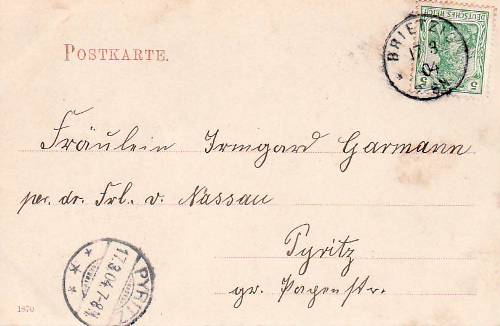 POSTKARTE.
BRIETZIG
17 3
04
DEUTSCHES REICH
5 5
Fräulein Irmgard Garmann
per. dr. Frl. v. Nassau
Pyritz
gr. Papenstr.
PYRITZ
17.3.04.7-8N.
1870